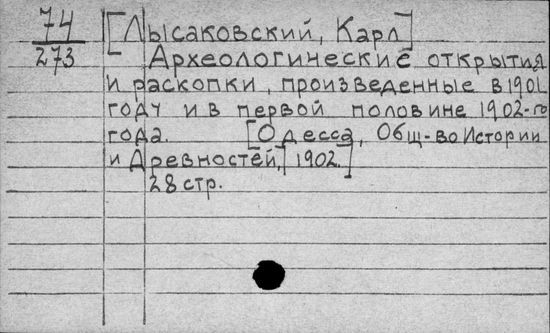 74 [Лысаковский, Карл]
273 Археологические открытия
и раскопки, произведенные в 1901
году и в первой половине 1902-го
года. [Одесса, Общ-во Истории
и Древностей, 1902.]
28 стр.